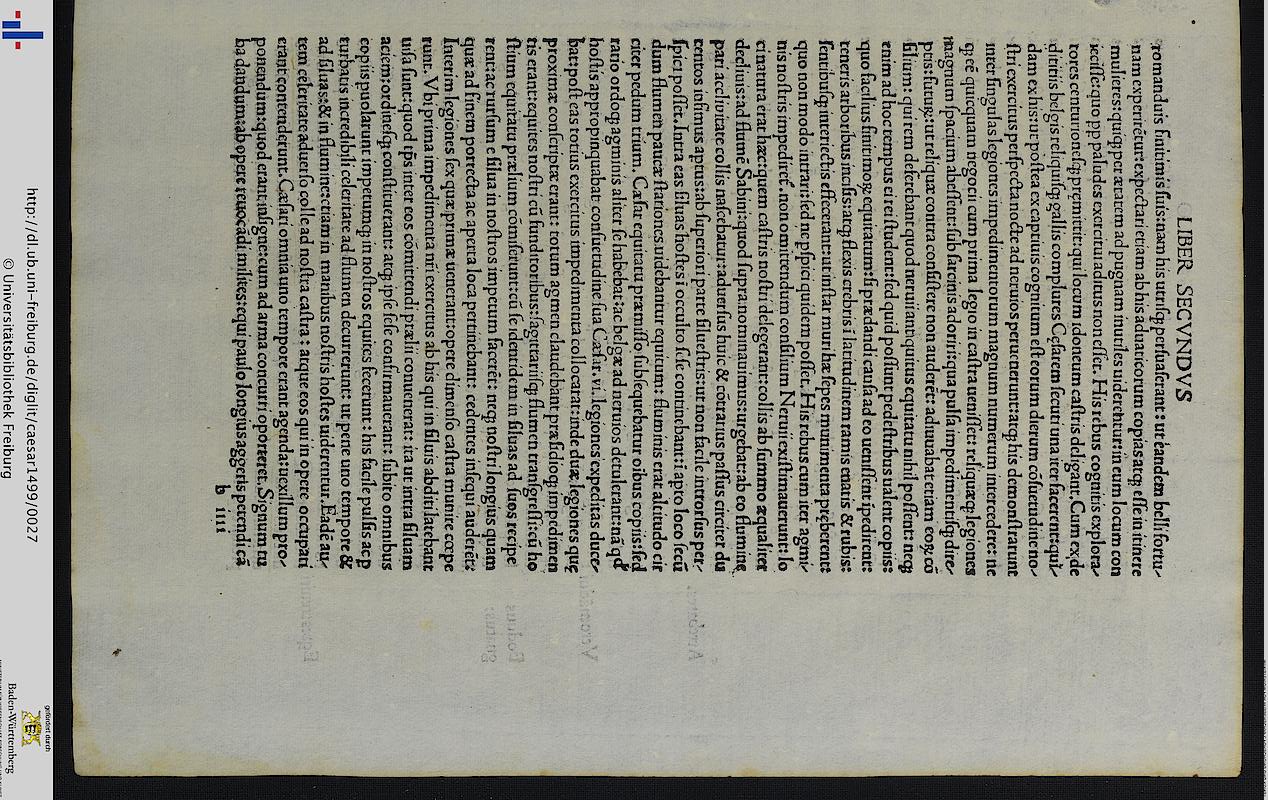 LIBER SECVNDVS
romanduis finitimis suis: nam his utrisq; persuaserant: ut eandem belli fortu-
nam experirétur: expectari etiam ab his aduaticorum copias: atq; esse in itinere
mulieres: quiq; per ætatem ad pugnam inutiles uiderentur: in eum locum con
iecisse: quo pp paludes exercitui aditus non esset. His rebus cognitis explora-
tores centurionesq; premittit: qui locum idoneum castris deligant. Cum ex de
dititiis belgis reliquisq; gallis complures Cęsarem secuti una iter facerent: qui-
dam ex his: ut postea ex captiuis cognitum est: eorum dierum cōsuetudine no-
stri exercitus perspecta nocte ad neruios peruenerunt: atq; his demonstrarunt
inter singulas legiones impedimentorum magnum numerum intercedere: ne
q; eē quicquam negocii cum prima legio in castra uenisset: reliquæq; legiones
magnum spacium abessent: sub sarcinis adoriri: qua pulsa impedimentisq; dire-
ptis: futurū: ut reliquæ contra consistere non auderēt: adiuuabat etiam eoꝝ cō
silium: qui rem deferebant quod neruii antiquitus equitatu nihil possent: neq;
enim ad hoc tempus ei rei student: sed quid possunt pedestribus ualent copiis:
quo facilius finitimoꝝ equitatum: si prædandi causa ad eo uenissent ipedirēt:
teneris arboribus incisis: atq; flexis crebris i latitudinem ramis enatis & rubis:
sentibusq; interiectis effecerant: ut instar muri hæ sepes munimenta pręberent:
quo non modo intrari: sed ne pspici quidem posset. His rebus cum iter agmi-
nis nostris impediret. non omittendum consilium Neruii existimauerunt: lo
ci natura erat hæc: quem castris nostri delegerant: collis ab summo æqualiter
decliuis: ad flumē Sabini: quod supra nominauimus: urgebat: ab eo flumine
pari accliuitate collis nascebatur: aduersus huic & cōtrarius passus circiter du
centos infimus aptus: ab superiori parte siluestris: ut non facile introrsus per-
spici posset. Intra eas siluas hostes i occulto sese continebant: i apto loco secū
dum flumen paucæ stationes uidebantur equitum: fluminis erat altitudo cir
citer pedum trium. Cæsar equitatu præmisso subsequebatur oibus copiis: sed
ratio ordoq; agminis aliter se habebat: ac belgæ ad neruios detulerant: nā qđ
hostis appropinquabat: consuetudine sua Cæsar. vi. legiones expeditas duce-
bat: post eas totius exercitus impedimenta collocarat: inde duæ legiones quę
proximæ conscriptæ erant: totum agmen claudebant præsidioq; impedimen
tis erant: equites nostri cū funditoribus: sagittariisq; flumen transgressi: cū ho
stium equitatu prælium cōmiserunt: cū se identidem in siluas ad suos recipe
rent: ac rursum e silua in nostros impetum facerēt: neq; nostri longius quam
quæ ad finem porrecta ac aperta loca pertinebant: cedentes insequi auderēt:
Interim legiones sex quæ primæ uenerant: opere dimenso castra munire cœpe
runt. Vbi prima impedimenta nri exercitus ab his qui in siluis abditi latebant
uisa sunt: quod tp̄s inter eos cōmittendi prælii conuenerat: ita ut intra siluam
aciem: ordinesq; constituerant: atq; ipsi sese confirmauerant: subito omnibus
copiis puolarunt impetumq; in nostros equites fecerunt: his facile pulsis ac p
turbatis incredibili celeritate ad flumen decurrerunt: ut pene uno tempore &
ad siluas: & in flumine: etiam in manibus nostris hostes uiderentur. Eadē au-
tem celeritate aduerso colle ad nostra castra: atque eos qui in opere occupati
erant contenderunt. Cæsari omnia uno tempore erant agenda: uexillum pro-
ponendum: quod erant insigne: cum ad arma concurri oporteret. Signum tu
ba dandum: ab opere reuocādi milites: equi paulo longius aggeris petendi cā
b iiii
http://dl.ub.uni-freiburg.de/diglit/caesar1499/0027
© Universitätsbibliothek Freiburg
gefördert durch
Baden-Württemberg